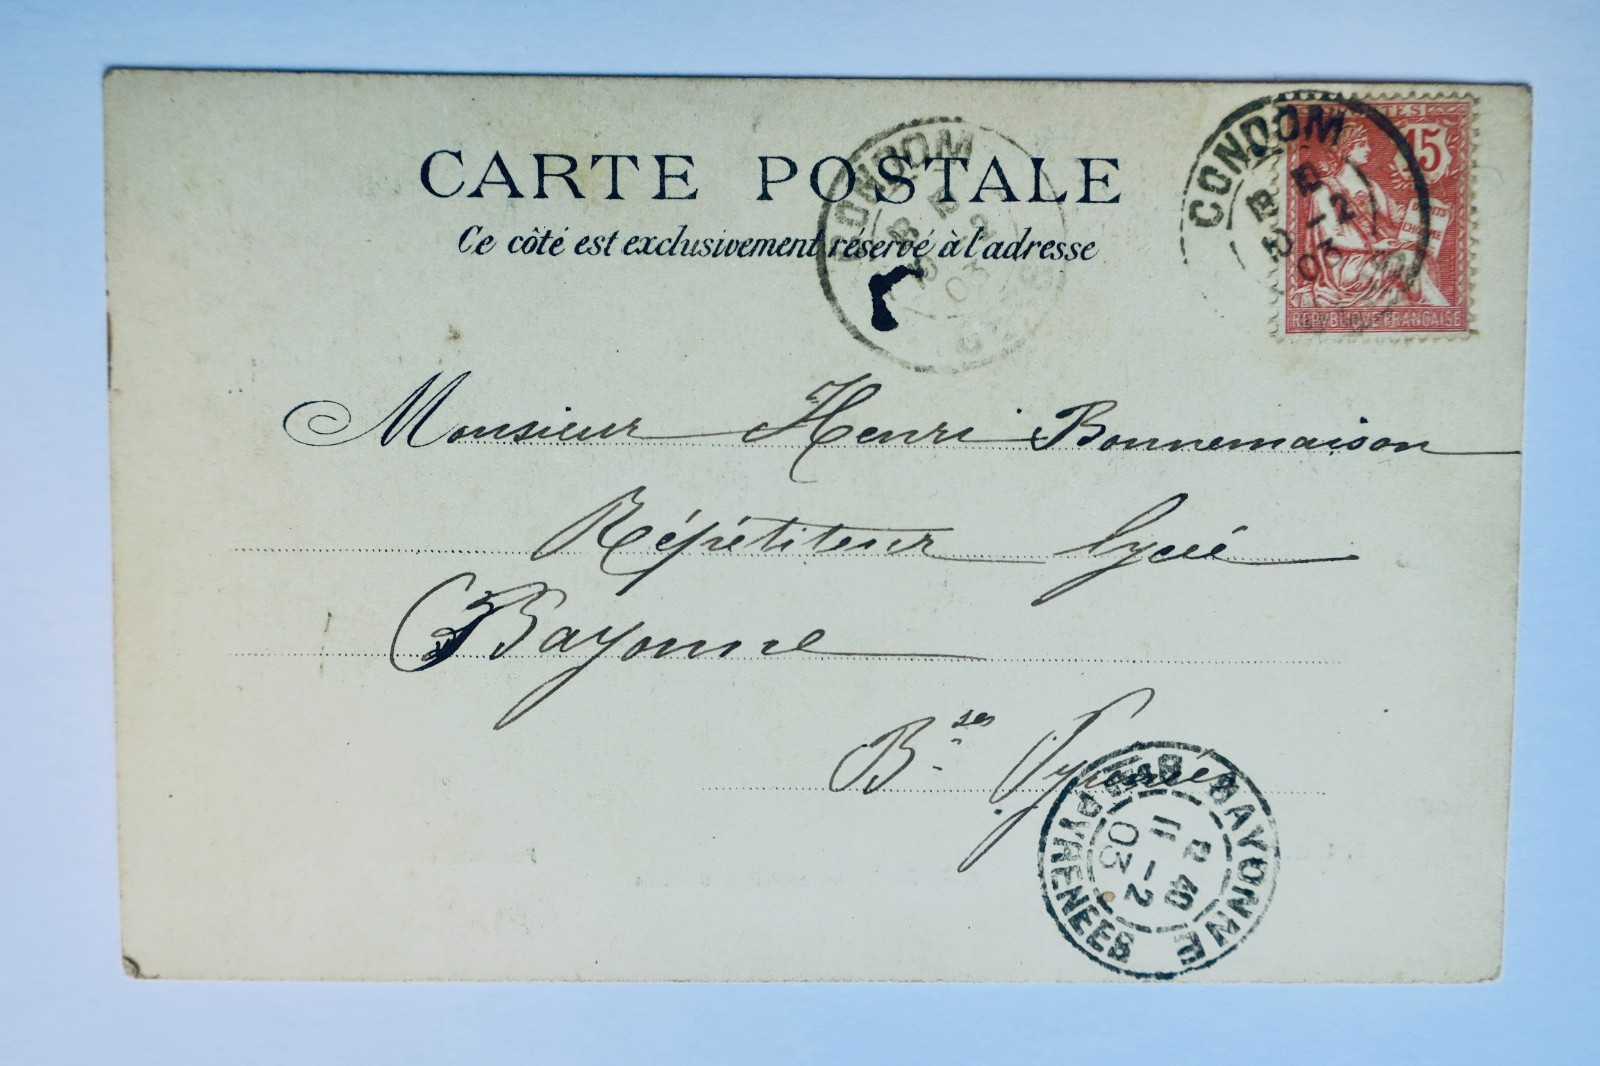 CARTE POSTALE
Ce côté est exclusivement réservé à l'adresse
CONDOM
10 -2
03
CONDOM
10 -2
03
POSTES
15
DROITS
DE
L'HOMME
REPVBLIQVE FRANÇAISE
Monsieur Henri Bonnemaison
Répétiteur lycée
Bayonne
Bses Pyrénées
BAYONNE
2 40
11 -2
03
PYRENEES